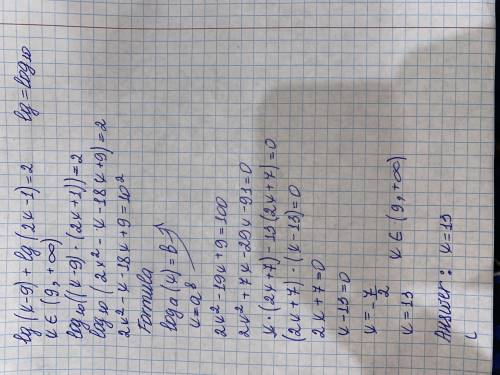 lg (x-9) + lg (2x-1) = 2 lg = log10
x ∈ (9, +∞)
log10 ((x-9) · (2x+1)) = 2
log10 (2x² - x - 18x + 9) = 2
2x² - x - 18x + 9 = 10²
Formula
log a (x) = b
x = a^b
2x² - 19x + 9 = 100
2x² + 7x - 29x - 93 = 0
x · (2x+7) - 13 (2x+7) = 0
(2x+7) · (x-13) = 0
2x+7 = 0
x-13 = 0
x = -7/2
x = 13 x ∈ (9, +∞)
Answer: x = 13